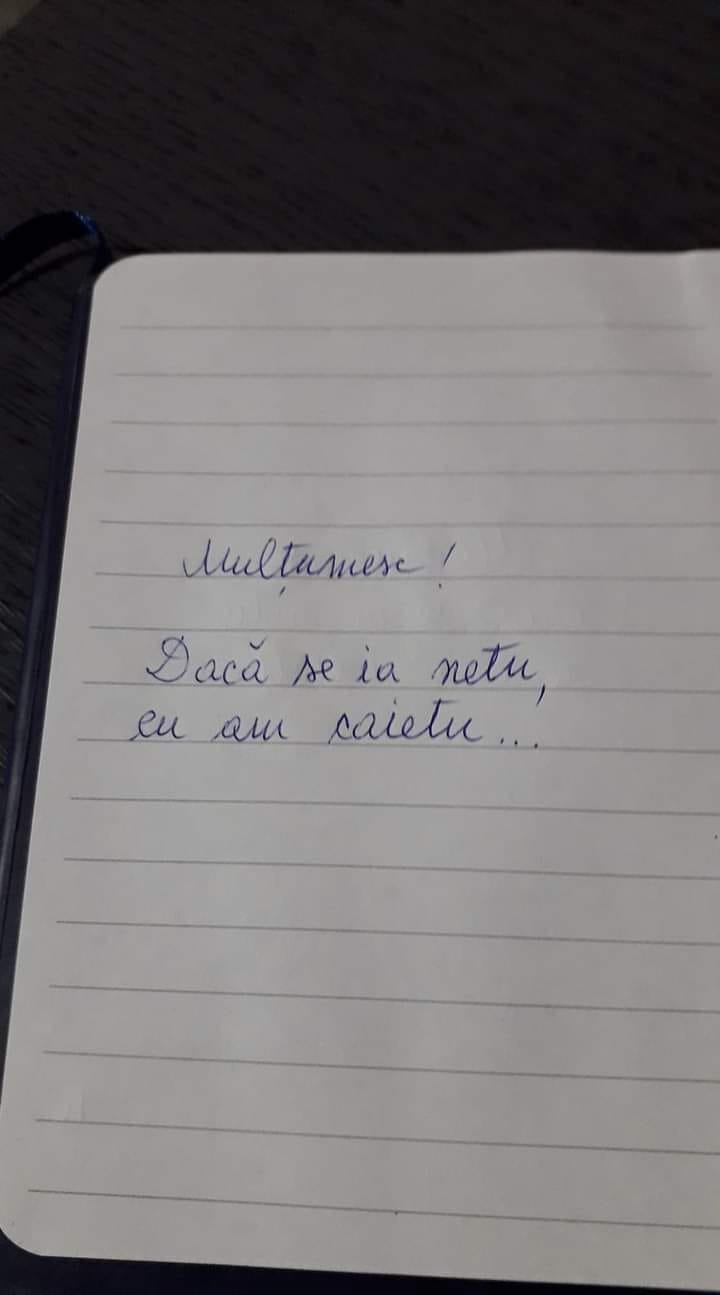 Mulțumesc!
Dacă se ia netu,
eu am caietu...